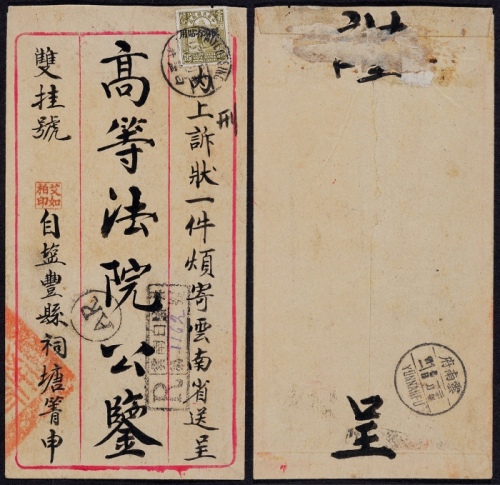 內上訴狀一件煩寄雲南省送呈
刑
高等法院公鑒
雙挂號
艾如
柏印
自盐豐縣祠塘箐申
AR
R
呈
雲南府
YUNNANFU